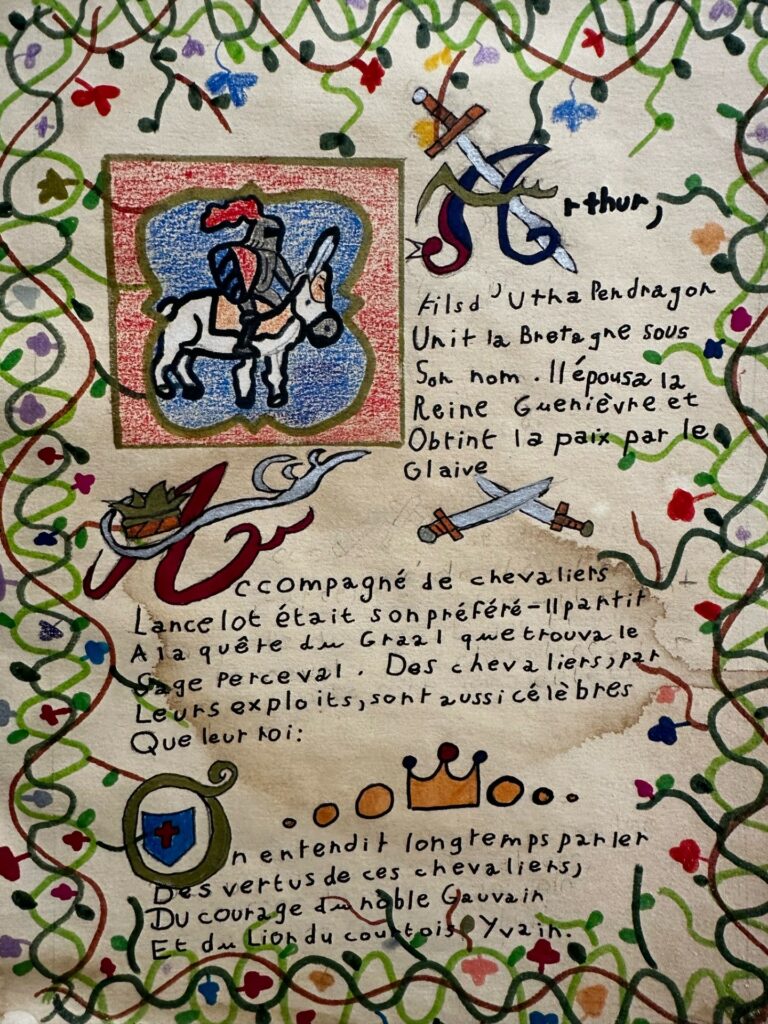 Arthur,
Fils d'Utha Pendragon
Unit la Bretagne sous
Son nom. Il épousa la
Reine Guenièvre et
Obtint la paix par le
Glaive
Accompagné de chevaliers
Lancelot était son préféré-Il partit
A la quête du Graal que trouva le
Sage Perceval. Des chevaliers, par
Leurs exploits, sont aussi célèbres
Que leur roi:
On entendit longtemps parler
Des vertus de ces chevaliers,
Du courage du noble Gauvain
Et du Lion du courtois Yvain.